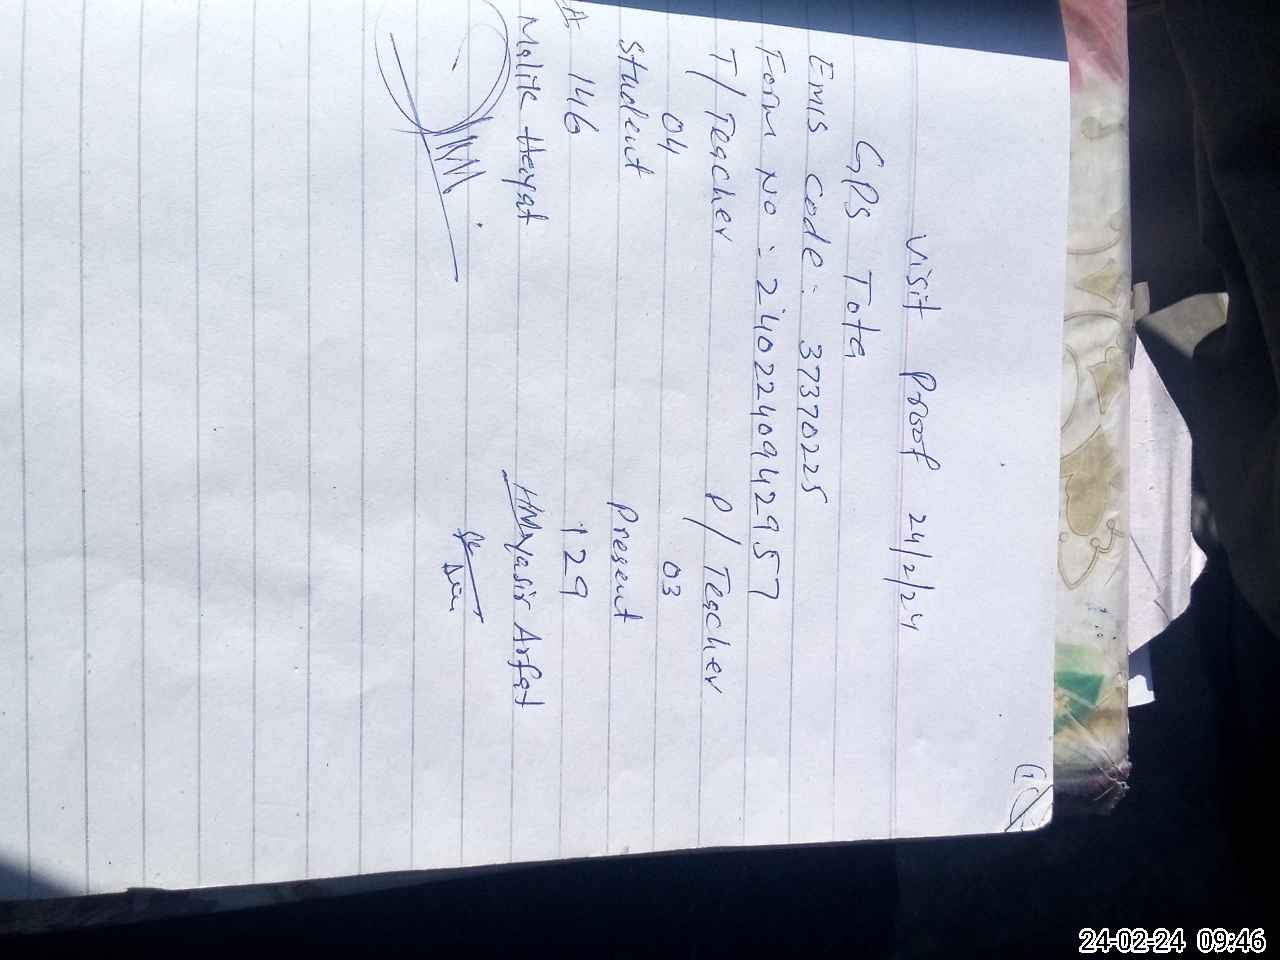 Visit Proof 24/2/24
GPS Tota
Emis Code: 37370225
Form No: 24022409429 57
T/Teacher P/Teacher
04 03
Student Present
146 129
Malik Hayat HM Yasir Arfat
24-02-24 09:46